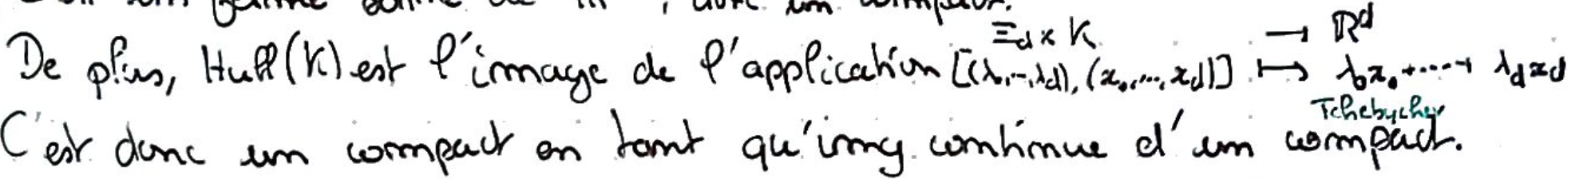 Ξd × K → ℝ^d
De plus, Hull(K) est l'image de l'application [(λ0,...,λd), (x0,...,xd)] ↦ λ0x0 + ... + λdxd
Tchebychev
C'est donc un compact en tant qu'img continue d'un compact.